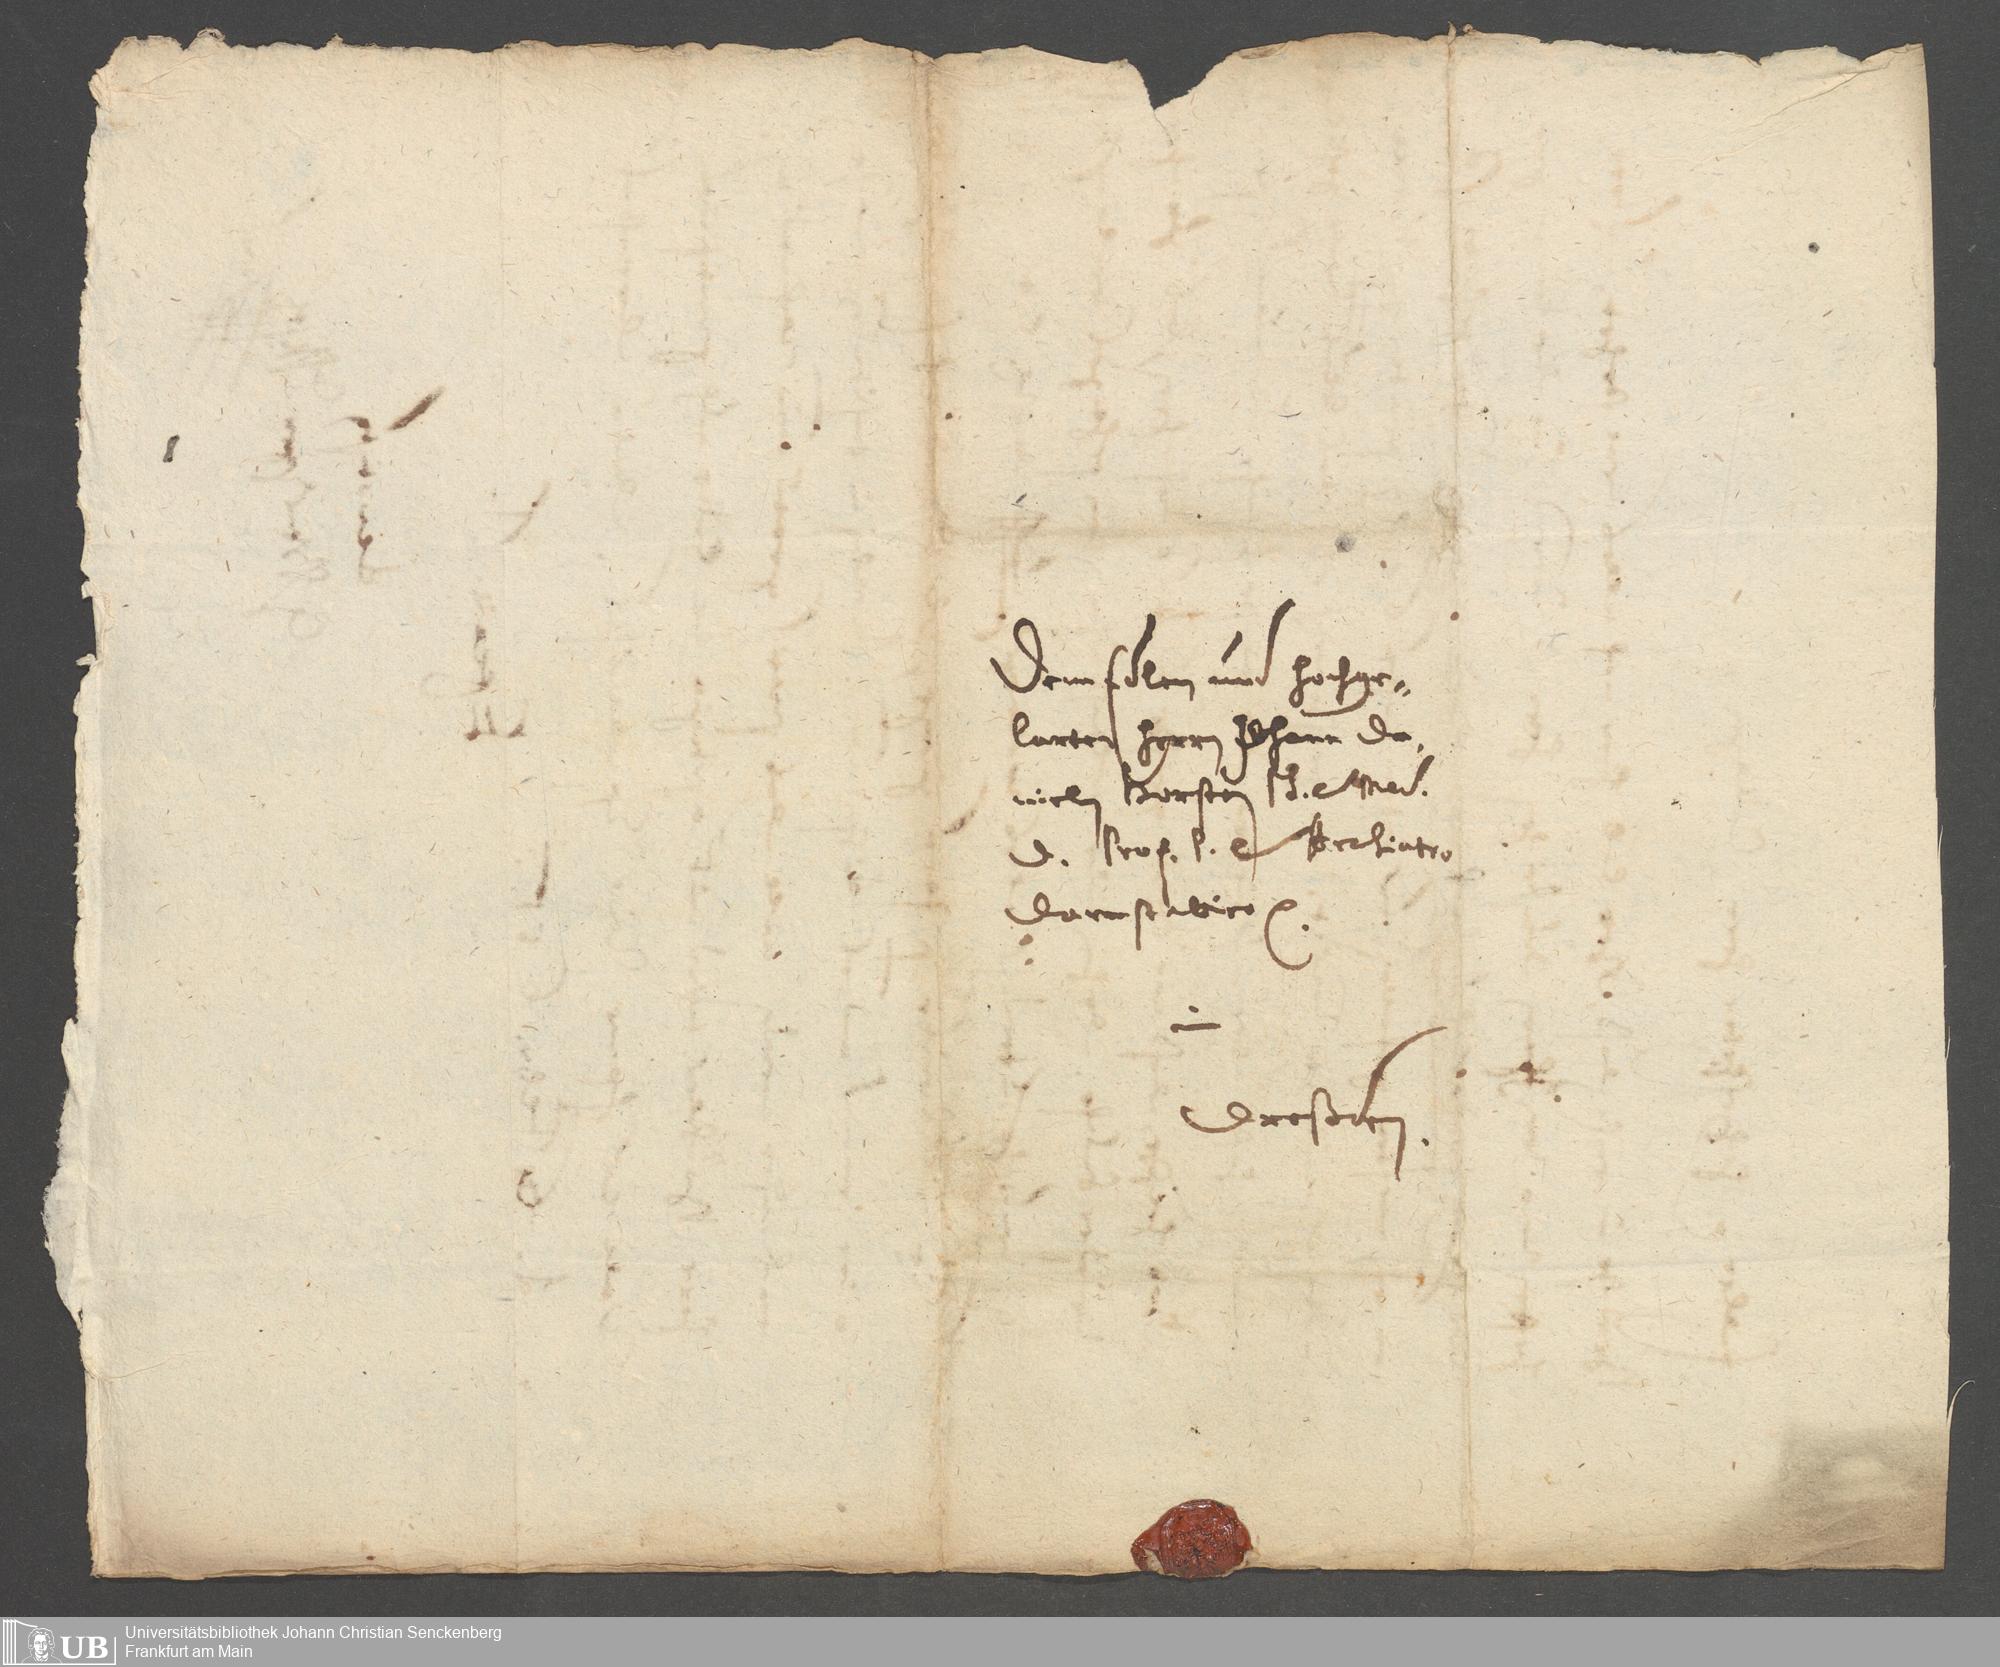 Dem Edlen und Hochge-
larten Herrn Johann Da-
nieln Horsten Ph. & Med.
D. Prof. P. & Archiatro
Darmstadino
in
Dreßden.
1
Universitätsbibliothek Johann Christian Senckenberg
Frankfurt am Main
UB